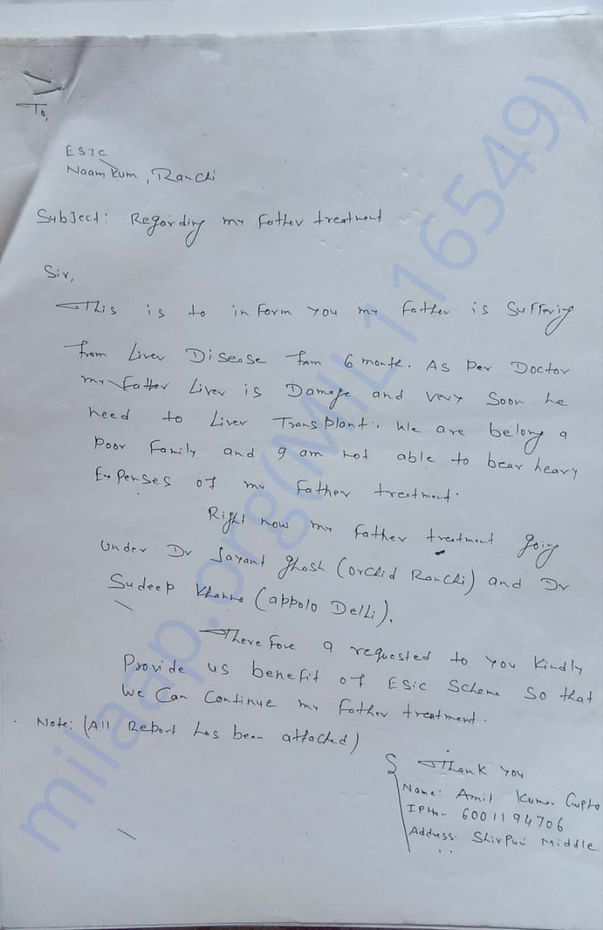 To,
ESIC
Naamkum, Ranchi
Subject: Regarding my father treatment
Sir,
This is to inform you my father is suffering
from Liver Disease from 6 month. As per Doctor
my father Liver is Damage and very soon he
need to Liver Transplant. We are belong a
poor family and I am not able to bear heavy
Expenses of my father treatment.
Right now my father treatment going
under Dr Jayant Ghosh (orchid Ranchi) and Dr
Sudeep Khanna (appolo Delhi).
Therefore I requested to you kindly
Provide us benefit of ESIC Scheme so that
We can continue my father treatment.
Note: (All Report has been attached)
Thank you
Name: Amit Kumar Gupta
IPNo- 6001194706
Address: Shivpuri Middle
milaap.org(MIL116549)